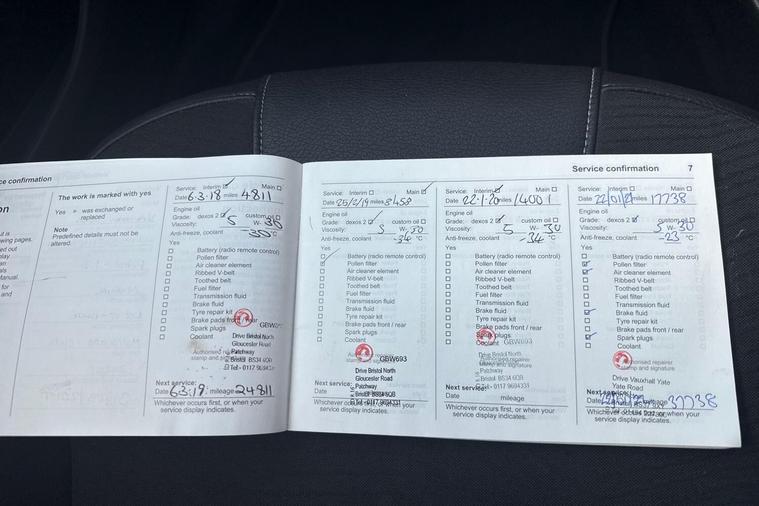 ce confirmation
on
wing pages.
and
The work is marked with yes
Yes = was exchanged or
replaced
Note
Predefined details must be
altered.
Service: Interim ☑ Main ☐
Date 6.3.18 miles 4811
Engine oil
Grade: dexos 2 ☑ custom oil ☐
Viscosity: 5 W- 30
Anti-freeze, coolant -35 °C
Yes
☐ Battery (radio remote control)
☐ Pollen filter
☐ Air cleaner element
☐ Ribbed V-belt
☐ Toothed belt
☐ Fuel filter
☐ Transmission fluid
☐ Brake fluid
☐ Tyre repair kit
☐ Brake pads front / rear
☐ Spark plugs
☐ Coolant
Drive Bristol North
Gloucester Road
Patchway
Bristol BS34 6QB
Next service:
Date 6.3.19: mileage 24811
Whichever occurs first, or when your
service display indicates.
Service confirmation 7
Service: Interim ☐ Main ☑
Date 25/2/19 miles 8458
Engine oil
Grade: dexos 2 ☑ custom oil ☐
Viscosity: 5 W- 30
Anti-freeze, coolant -34 °C
Yes
Battery (radio remote control)
☐ Pollen filter
☐ Air cleaner element
☐ Ribbed V-belt
☐ Toothed belt
☐ Fuel filter
☐ Transmission fluid
☐ Brake fluid
☐ Tyre repair kit
☐ Brake pads front / rear
☐ Spark plugs
☐ Coolant
GBW693
Drive Bristol North
Gloucester Road
Patchway
Bristol BS34 6QB
Tel - 0117 9694331
Next service:
Date mileage
Whichever occurs first, or when your
service display indicates.
Service: Interim ☑ Main ☐
Date 22.1.20 miles 14001
Engine oil
Grade: dexos 2 ☑ custom oil ☐
Viscosity: 5 W- 30
Anti-freeze, coolant -34 °C
Yes
☐ Battery (radio remote control)
☐ Pollen filter
☐ Air cleaner element
☐ Ribbed V-belt
☐ Toothed belt
☐ Fuel filter
☐ Transmission fluid
☐ Brake fluid
☐ Tyre repair kit
☐ Brake pads front / rear
☐ Spark plugs
☐ Coolant GBW693
Drive Bristol North
Gloucester Road
Patchway
Bristol BS34 6QB
Tel - 0117 9694331
Next service:
Date mileage
Whichever occurs first, or when your
service display indicates.
Service: Interim ☐ Main ☐
Date 22/01/21 miles 17738
Engine oil
Grade: dexos 2 ☑ custom oil ☐
Viscosity: 5 W- 30
Anti-freeze, coolant -23 °C
Yes
☐ Battery (radio remote control)
☑ Pollen filter
☑ Air cleaner element
☐ Ribbed V-belt
☐ Toothed belt
☐ Fuel filter
☐ Transmission fluid
☑ Brake fluid
☐ Tyre repair kit
☐ Brake pads front / rear
☑ Spark plugs
☐ Coolant
Authorised repairer
stamp and signature
Drive Vauxhall Yate
Yate Road
Next service:
Date mileage 37738
Whichever occurs first, or when your
service display indicates.